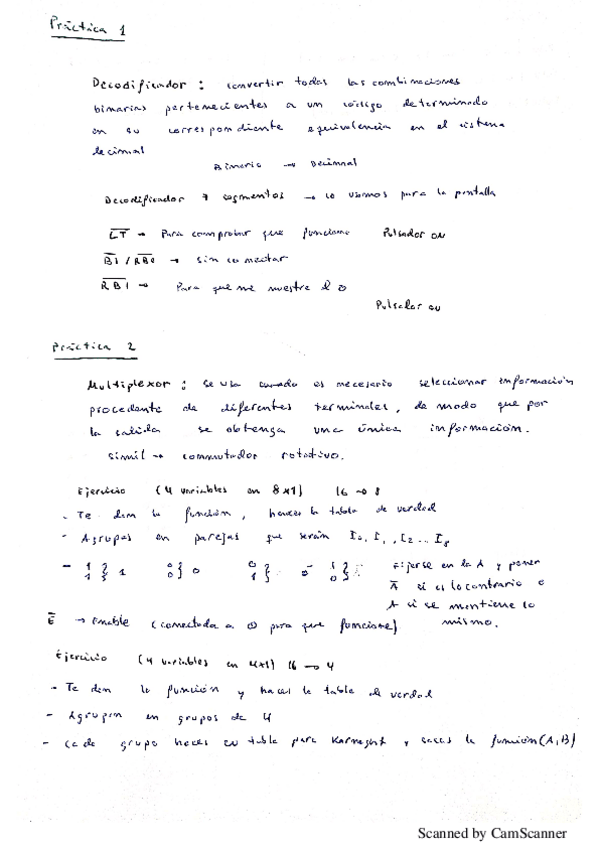 Práctica 1
Decodificador : convertir todas las combinaciones
binarias pertenecientes a un código determinado
en su correspondiente equivalencia en el sistema
decimal
Binario → Decimal
Decodificador 7 segmentos → lo usamos para la pantalla
L̅T̅ → Para comprobar que funcione Pulsador ON
B̅I̅ / R̅B̅O̅ → sin conectar
R̅B̅I̅ → Para que me muestre el 0
Pulsador ON
Práctica 2
Multiplexor : se usa cuando es necesario seleccionar información
procedente de diferentes terminales, de modo que por
la salida se obtenga una única información.
simil → conmutador rotativo.
Ejercicio (4 variables en 8x1) 16 → 8
- Te dan la función, haces la tabla de verdad
- Agrupas en parejas que serán I0, I1, I2 ... I8
- 1 1 } 1 0 0 } 0 0 1 } ó 1 0 } Fijarse en la A y poner
A̅ si es lo contrario o
A si se mantiene lo
mismo.
E̅ → Enable (conectada a 0 para que funcione)
Ejercicio (4 variables en 4x1) 16 → 4
- Te dan la función y haces la tabla de verdad
- Agrupan en grupos de 4
- Cada grupo haces su tabla para Karnaght y sacas la función (A,B)
Scanned by CamScanner